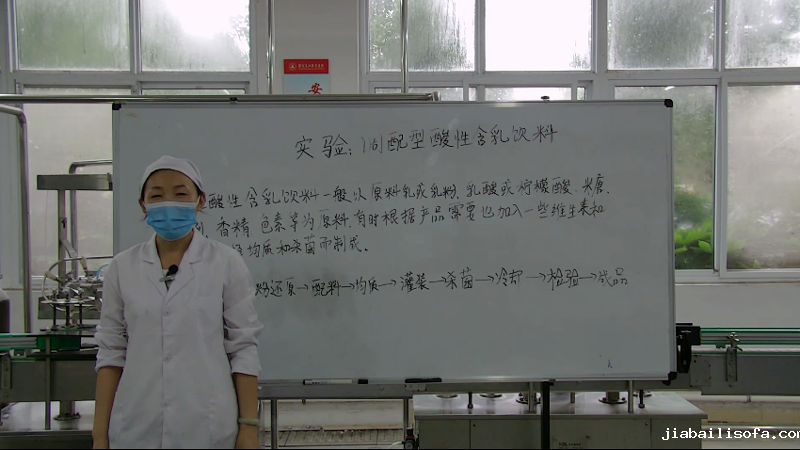 安
实验:调配型酸性含乳饮料
酸性含乳饮料一般以原料乳或乳粉、乳酸或柠檬酸、米糖、
剂、香精、色素等为原料,有时根据产品需要也加入一些维生素和
均质和杀菌而制成。
粉还原→配料→均质→灌装→杀菌→冷却→检验→成品
jiabailisofa.com